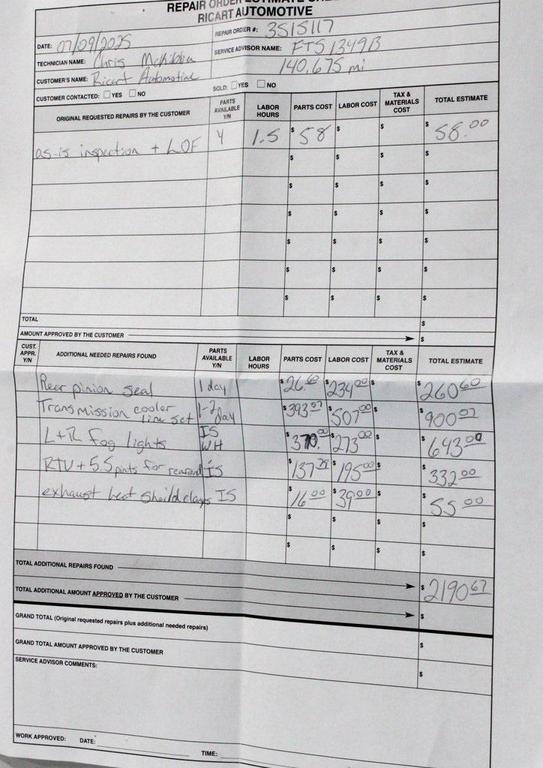 REPAIR ORDER ESTIMATE
RICART AUTOMOTIVE
DATE: 07/09/2025
REPAIR ORDER #: 3515117
TECHNICIAN NAME: Chris
SERVICE ADVISOR NAME: FTS1349B
140,675 mi
CUSTOMER'S NAME: Ricart Automotive
CUSTOMER CONTACTED: YES NO SOLD: YES NO
ORIGINAL REQUESTED REPAIRS BY THE CUSTOMER PARTS AVAILABLE Y/N LABOR HOURS PARTS COST LABOR COST TAX & MATERIALS COST TOTAL ESTIMATE
as-is inspection + LOF Y 1.5 $ 58 $ $ $ 58.00
$ $ $ $
$ $ $ $
$ $ $ $
$ $ $ $
$ $ $ $
$ $ $ $
TOTAL $
AMOUNT APPROVED BY THE CUSTOMER $
CUST. APPR. Y/N ADDITIONAL NEEDED REPAIRS FOUND PARTS AVAILABLE Y/N LABOR HOURS PARTS COST LABOR COST TAX & MATERIALS COST TOTAL ESTIMATE
Rear pinion seal 1 day $ 26.60 $ 234.00 $ $ 260.60
Transmission cooler line set 1-2 day $ 393.07 $ 507.00 $ $ 900.07
L+R fog lights IS WH $ 370.00 $ 273.00 $ $ 643.00
RTU + 5.5 pints for IS $ 137 $ 195.00 $ $ 332.00
exhaust heat sheild IS $ 16.00 $ 39.00 $ $ 55.00
$ $ $ $
$ $ $ $
TOTAL ADDITIONAL REPAIRS FOUND $ 2190.67
TOTAL ADDITIONAL AMOUNT APPROVED BY THE CUSTOMER $
GRAND TOTAL (Original requested repairs plus additional needed repairs) $
GRAND TOTAL AMOUNT APPROVED BY THE CUSTOMER $
SERVICE ADVISOR COMMENTS:
WORK APPROVED: DATE: TIME: